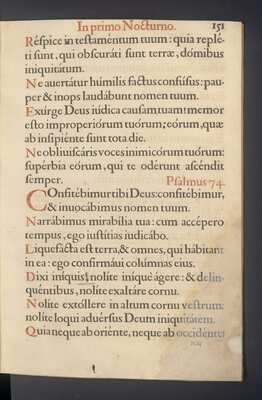 In primo Nocturno. 151
Réspice in testaméntum tuum: quia repléti
ti sunt, qui obscuráti sunt terræ, dómibus
iniquitátum.
Ne avertátur húmilis factus confúsus: pau-
per & inops laudábunt nomen tuum.
Exúrge Deus iúdica causam tuam: memor
esto improperiórum tuórum; eórum, quæ
ab insipiénte sunt tota die.
Ne obliviscáris voces inimicórum tuórum:
supérbia eórum, qui te odérunt ascéndit
semper. Psalmus 74.
COnfitébimur tibi Deus: confitébimur,
& invocábimus nomen tuum.
Narrábimus mirabília tua: cum accépero
tempus, ego iustítias iudicábo.
Liquefácta est terra, & omnes, qui hábitant
in ea: ego confirmávi colúmnas eius.
Dixi iníquis, nolíte iníque ágere: & delin-
quéntibus, nolíte exaltáre cornu.
Nolíte extóllere in altum cornu vestrum:
nolíte loqui advérsus Deum iniquitátem.
Quia neque ab oriénte, neque ab occidénte: